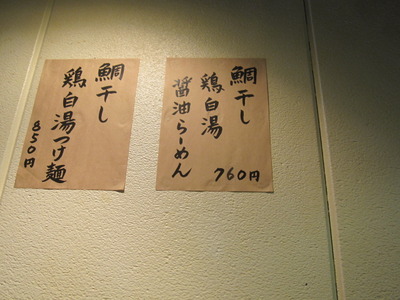 鯛干し
鶏白湯
醤油らーめん
760円
鯛干し
鶏白湯つけ麺
850円